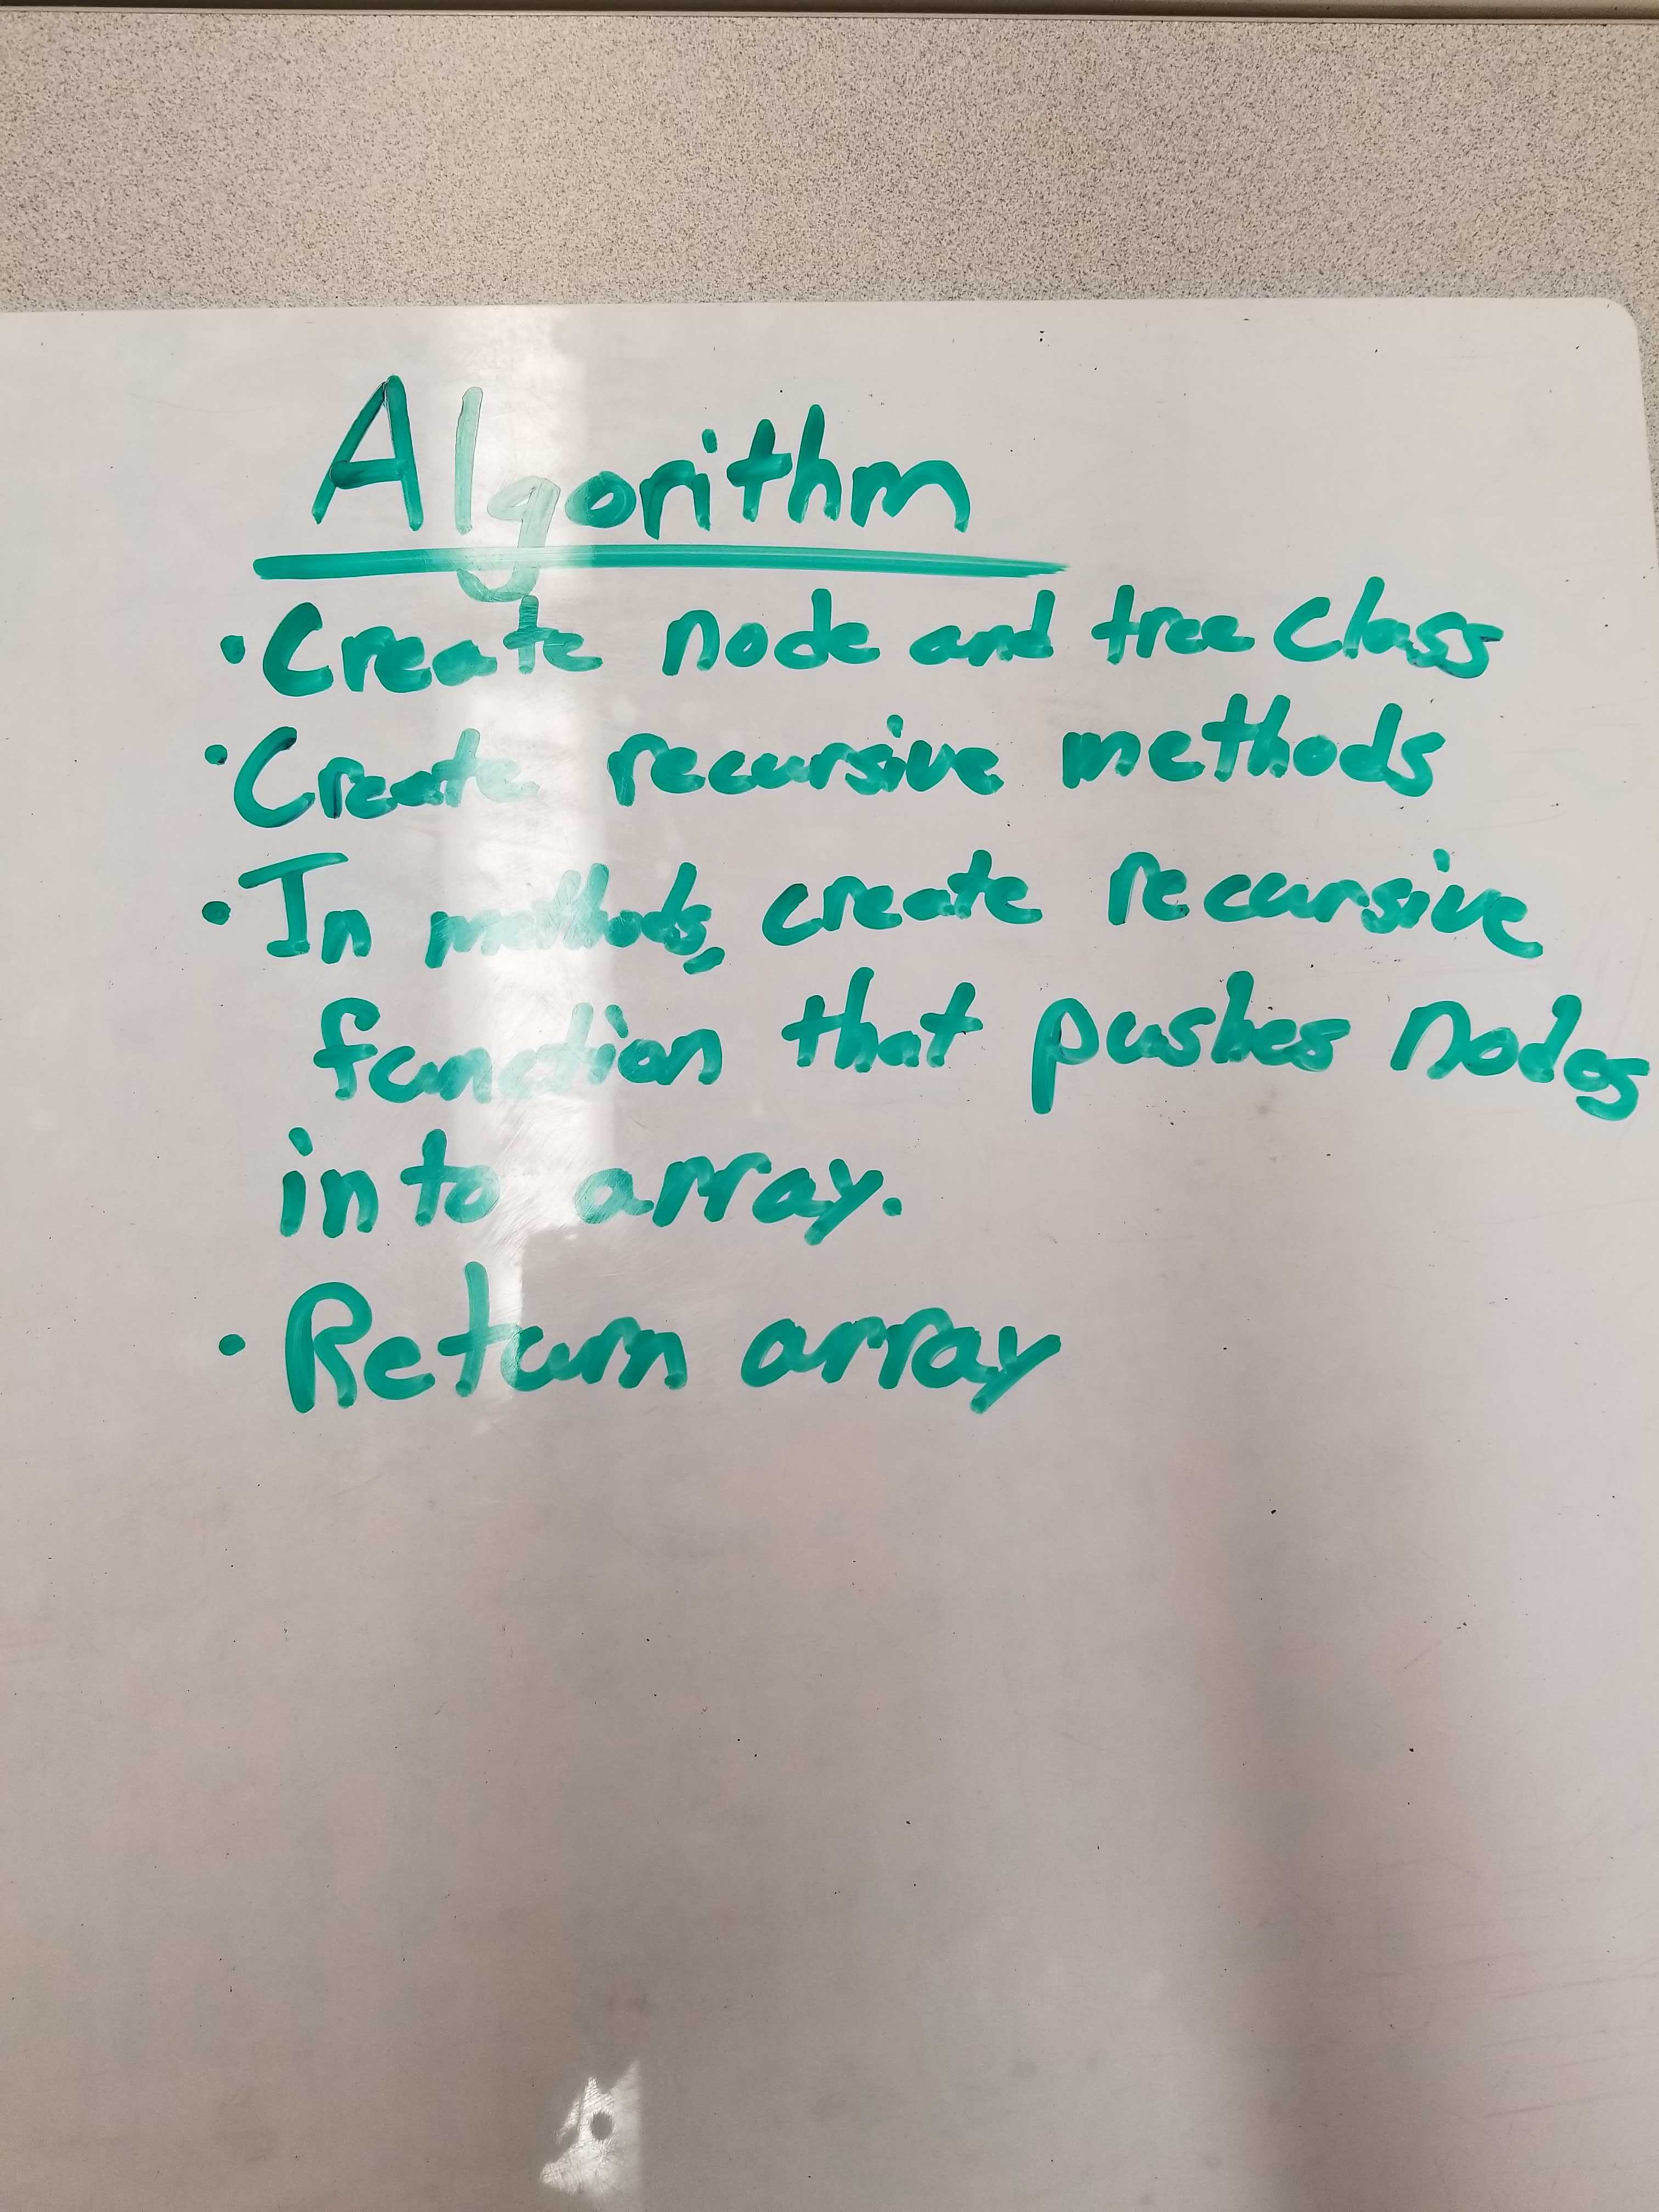 Algorithm
• Create node and tree class
• Create recursive methods
• In methods, create recursive
function that pushes nodes
into array.
• Return array